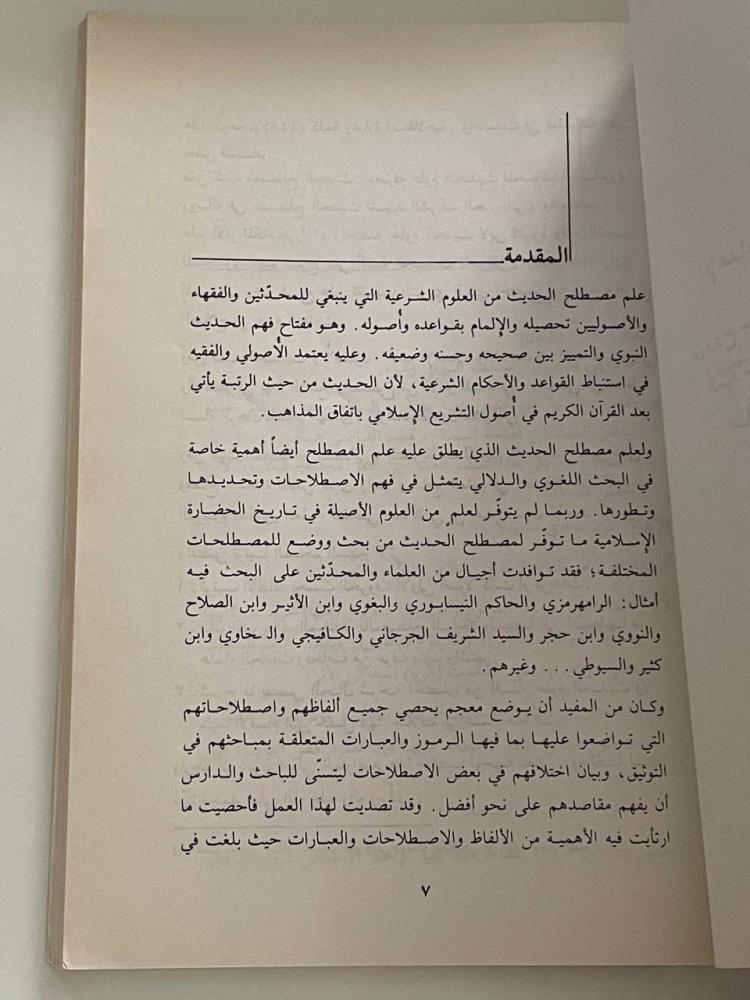 المقدمة
علم مصطلح الحديث من العلوم الشرعية التي ينبغي للمحدّثين والفقهاء
والأصوليين تحصيله والإلمام بقواعده وأُصوله. وهو مفتاح فهم الحديث
النبوي والتمييز بين صحيحه وحسنه وضعيفه. وعليه يعتمد الأُصولي والفقيه
في استنباط القواعد والأحكام الشرعية، لأن الحديث من حيث الرتبة يأتي
بعد القرآن الكريم في أُصول التشريع الإسلامي باتفاق المذاهب.
ولعلم مصطلح الحديث الذي يطلق عليه علم المصطلح أيضاً أهمية خاصة
في البحث اللغوي والدلالي يتمثل في فهم الاصطلاحات وتحديدها
وتطورها. وربما لم يتوفّر لعلمٍ من العلوم الأصيلة في تاريخ الحضارة
الإسلامية ما توفّر لمصطلح الحديث من بحث ووضع للمصطلحات
المختلفة؛ فقد توافدت أجيال من العلماء والمحدّثين على البحث فيه
أمثال: الرامهرمزي والحاكم النيسابوري والبغوي وابن الأثير وابن الصلاح
والنووي وابن حجر والسيد الشريف الجرجاني والكافيجي والسخاوي وابن
كثير والسيوطي... وغيرهم.
وكان من المفيد أن يوضع معجم يحصي جميع ألفاظهم واصطلاحاتهم
التي تواضعوا عليها بما فيها الرموز والعبارات المتعلقة بمباحثهم في
التوثيق، وبيان اختلافهم في بعض الاصطلاحات ليتسنّى للباحث والدارس
أن يفهم مقاصدهم على نحو أفضل. وقد تصديت لهذا العمل فأحصيت ما
ارتأيت فيه الأهمية من الألفاظ والاصطلاحات والعبارات حيث بلغت في
٧